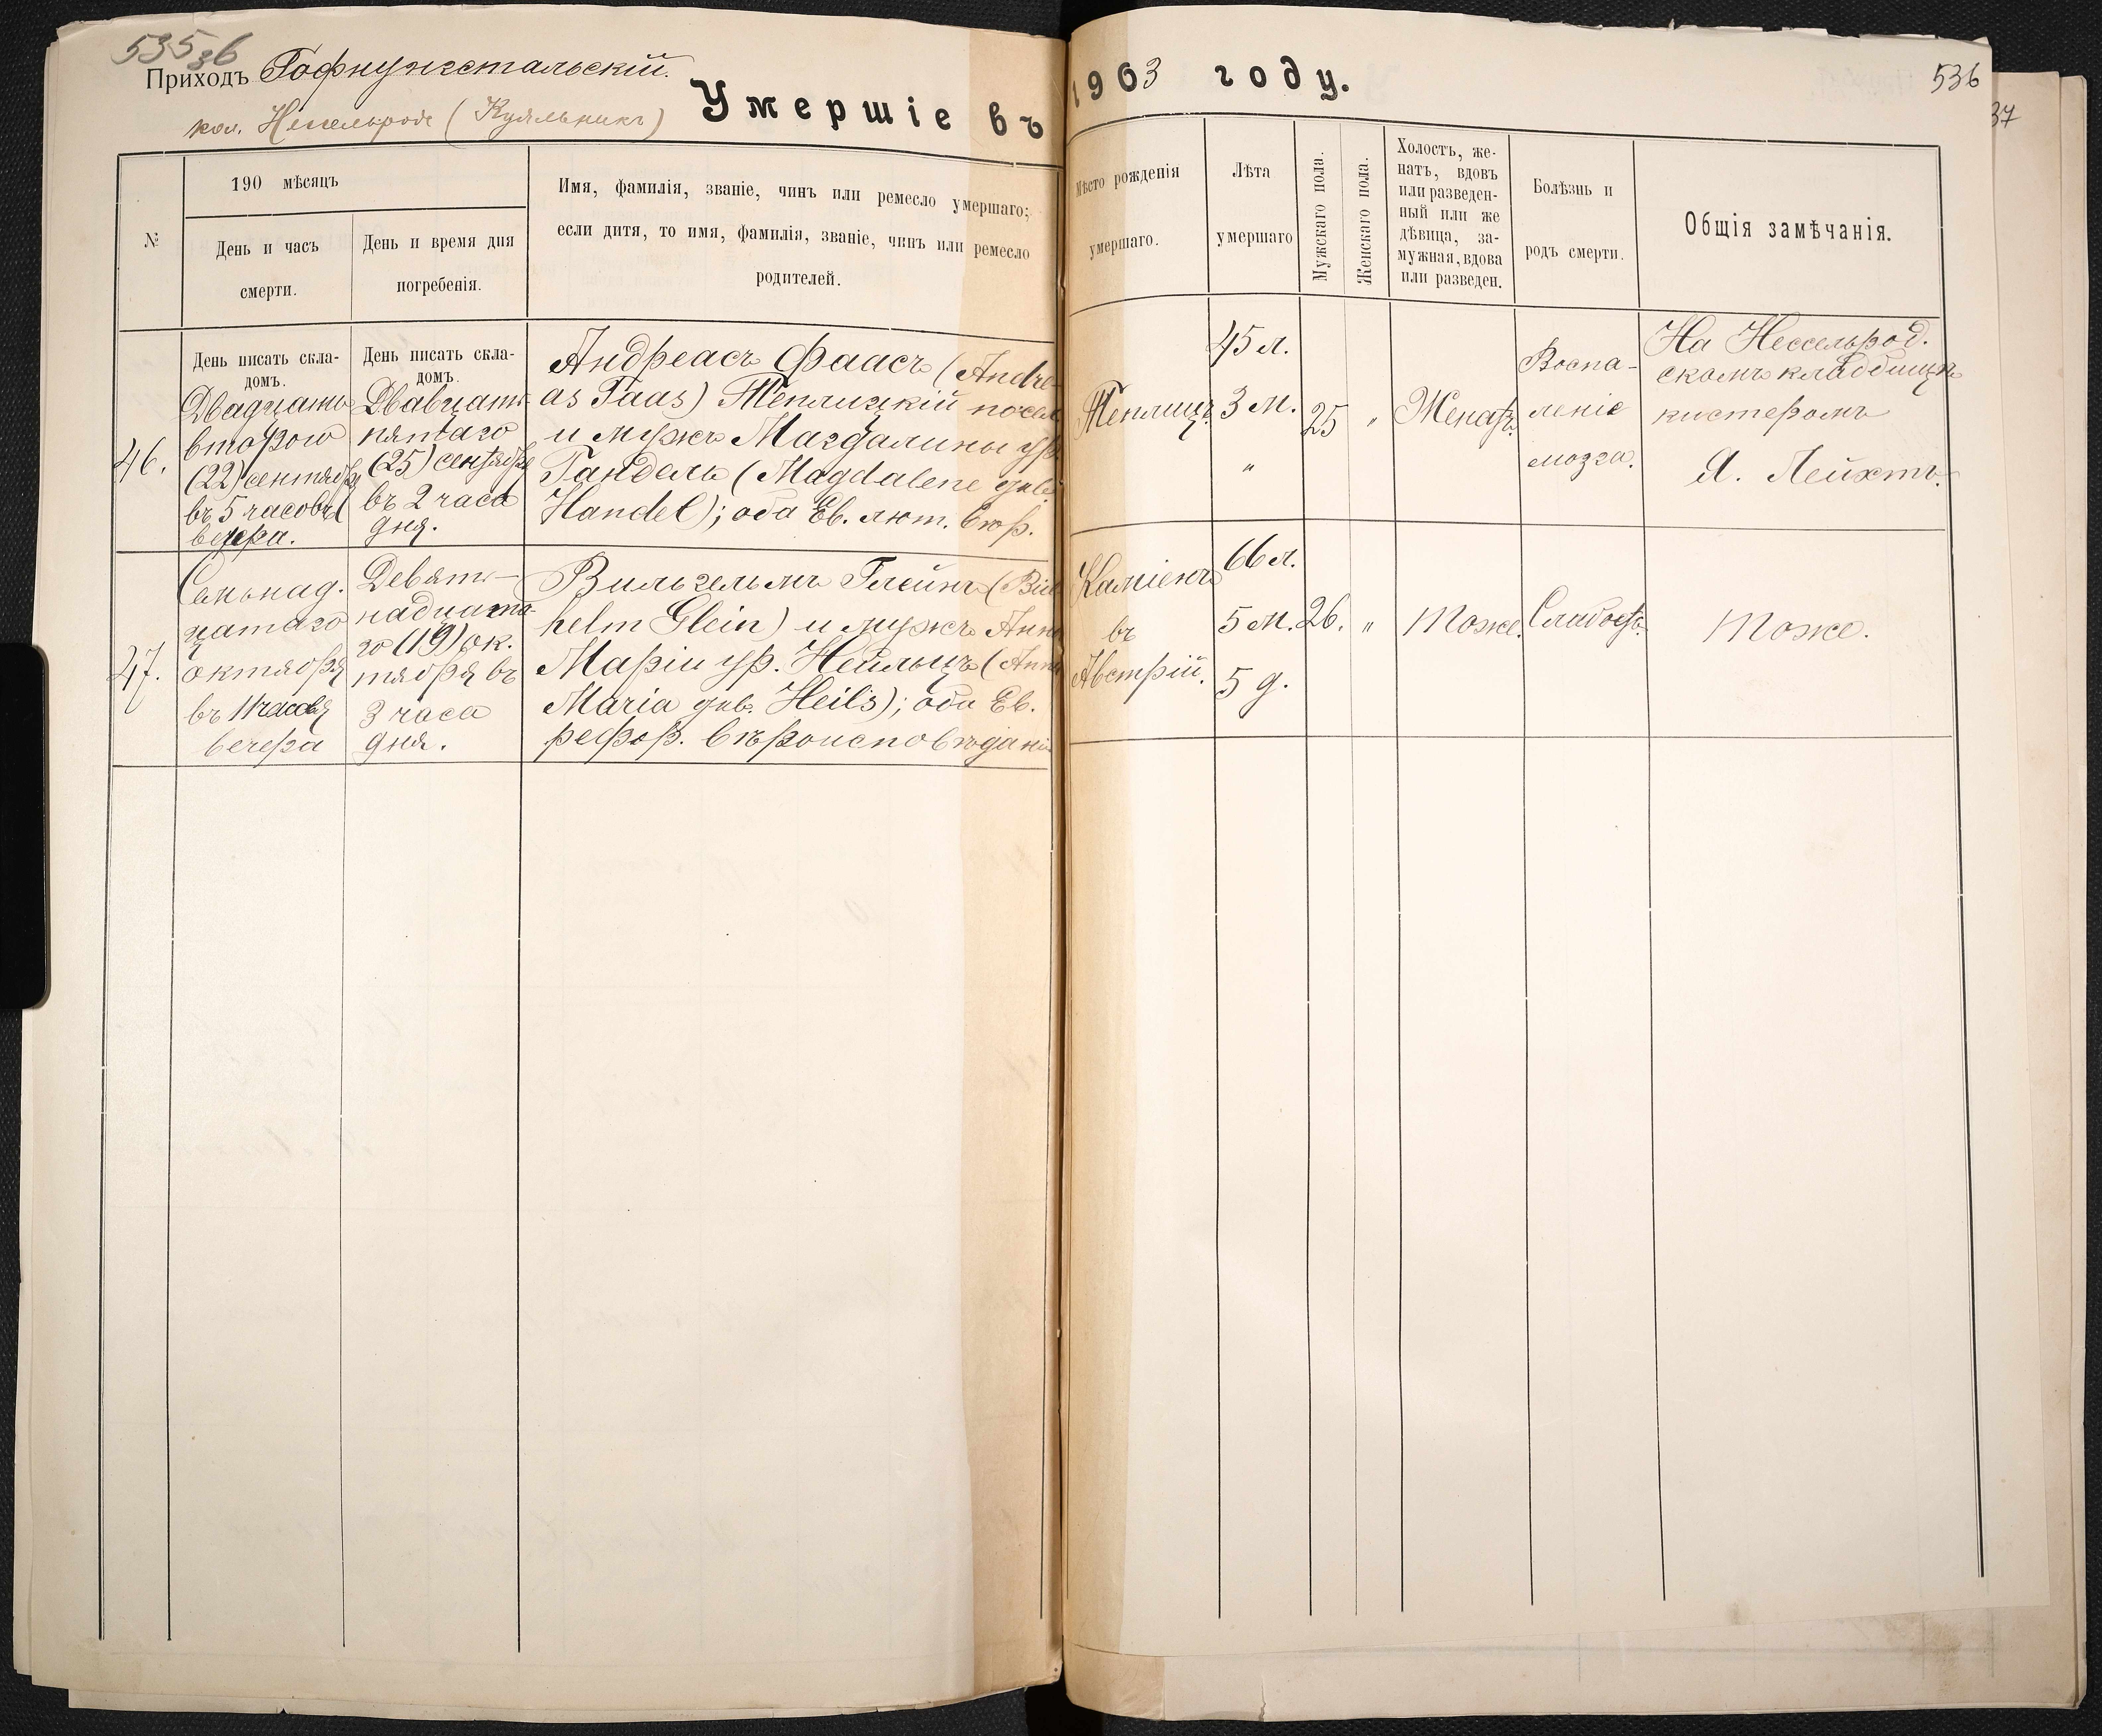 53536
Приходъ Гофнунгстальскій.
кол. Нессельроде (Куяльникъ)
Умершіе въ
1903 году.
536
37
№
190 мѣсяцъ
День и часъ
смерти.
День и время дня
погребенія.
Имя, фамилія, званіе, чинъ или ремесло умершаго;
если дитя, то имя, фамилія, званіе, чинъ или ремесло
родителей.
Мѣсто рожденія
умершаго.
Лѣта
умершаго
Мужскаго пола.
Женскаго пола.
Холостъ, же-
натъ, вдовъ
или разведен-
ный или же
дѣвица, за-
мужная, вдова
или разведен.
Болѣзнь и
родъ смерти.
Общія замѣчанія.
46.
День писать скла-
домъ.
Двадцать
второго
(22) сентября
въ 5 часовъ
вечера.
День писать скла-
домъ.
Двадцать
пятаго
(25) сентября
въ 2 часа
дня.
Андреасъ Фаасъ (Andre-
as Faas) Теплицкій посел
и мужъ Магдалины ур.
Гандель (Magdalene geb.
Handel); оба Ев. лют. вѣр.
Теплицъ.
45 л.
3 м.
"
25
"
Женатъ.
Воспа-
леніе
мозга.
На Нессельрод.
скомъ кладбищѣ
кистеромъ
Я. Лейхтъ.
47.
Семнад.
цатаго
октября
въ 11 часовъ
вечера
Девят-
надцата-
го (19) ок.
тября въ
3 часа
дня.
Вильгельмъ Глейнъ (Wil
helm Glein) и мужъ Анны
Маріи ур. Нейльцъ (Anna
Maria geb. Heils); оба Ев.
рефор. вѣроисповѣданія
Каміенъ
въ
Австрій.
66 л.
5 м.
5 д.
26.
"
Тоже.
Слабость.
Тоже.